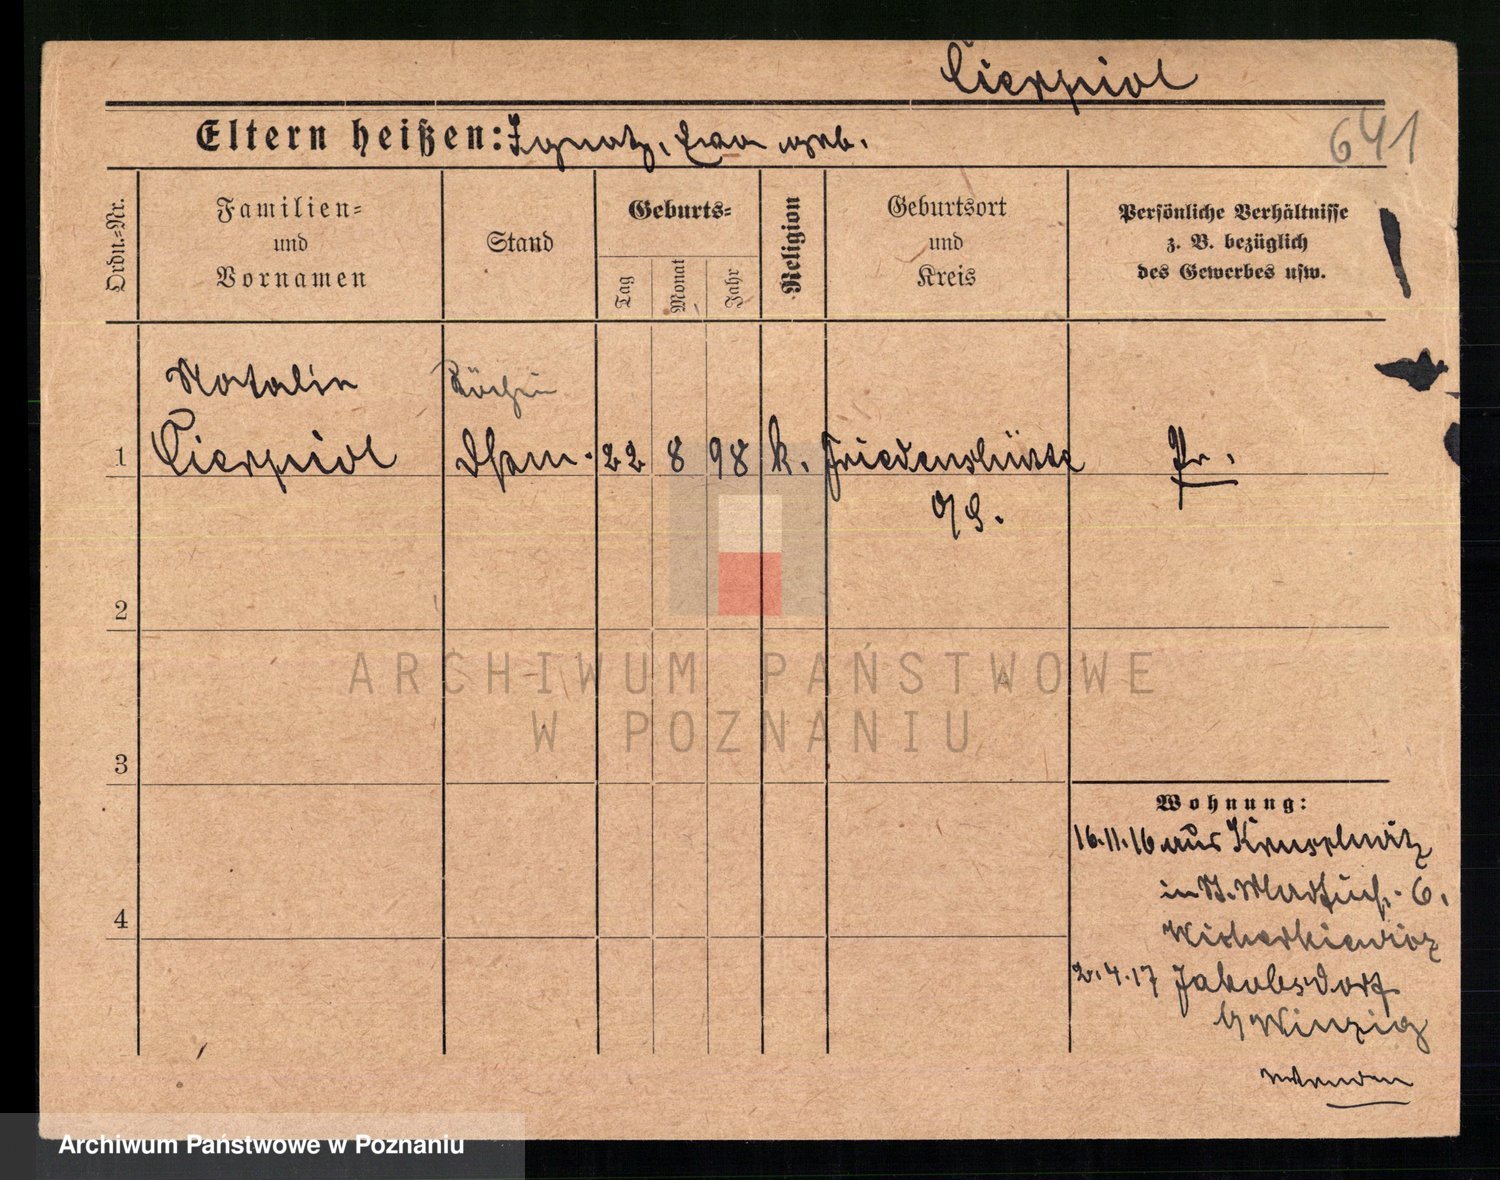 Cierpiol
Eltern heißen: Ignatz, Ewa geb.
641
Ordn.-Nr.
Familien-
und
Vornamen
Stand
Geburts-
Tag
Monat
Jahr
Religion
Geburtsort
und
Kreis
Persönliche Verhältnisse
z. B. bezüglich
des Gewerbes usw.
Natalie Köchin
1 Cierpiol 22 8 98 k. Friedenshütte Pr.
O/S.
2
ARCHIWUM PAŃSTWOWE
W POZNANIU
3
Wohnung:
16.11.16 aus Kruschwitz
in St. 6.
4
Wicherkiewicz
2.4.17 Jakobsdorf
b/ Winzig
Archiwum Państwowe w Poznaniu